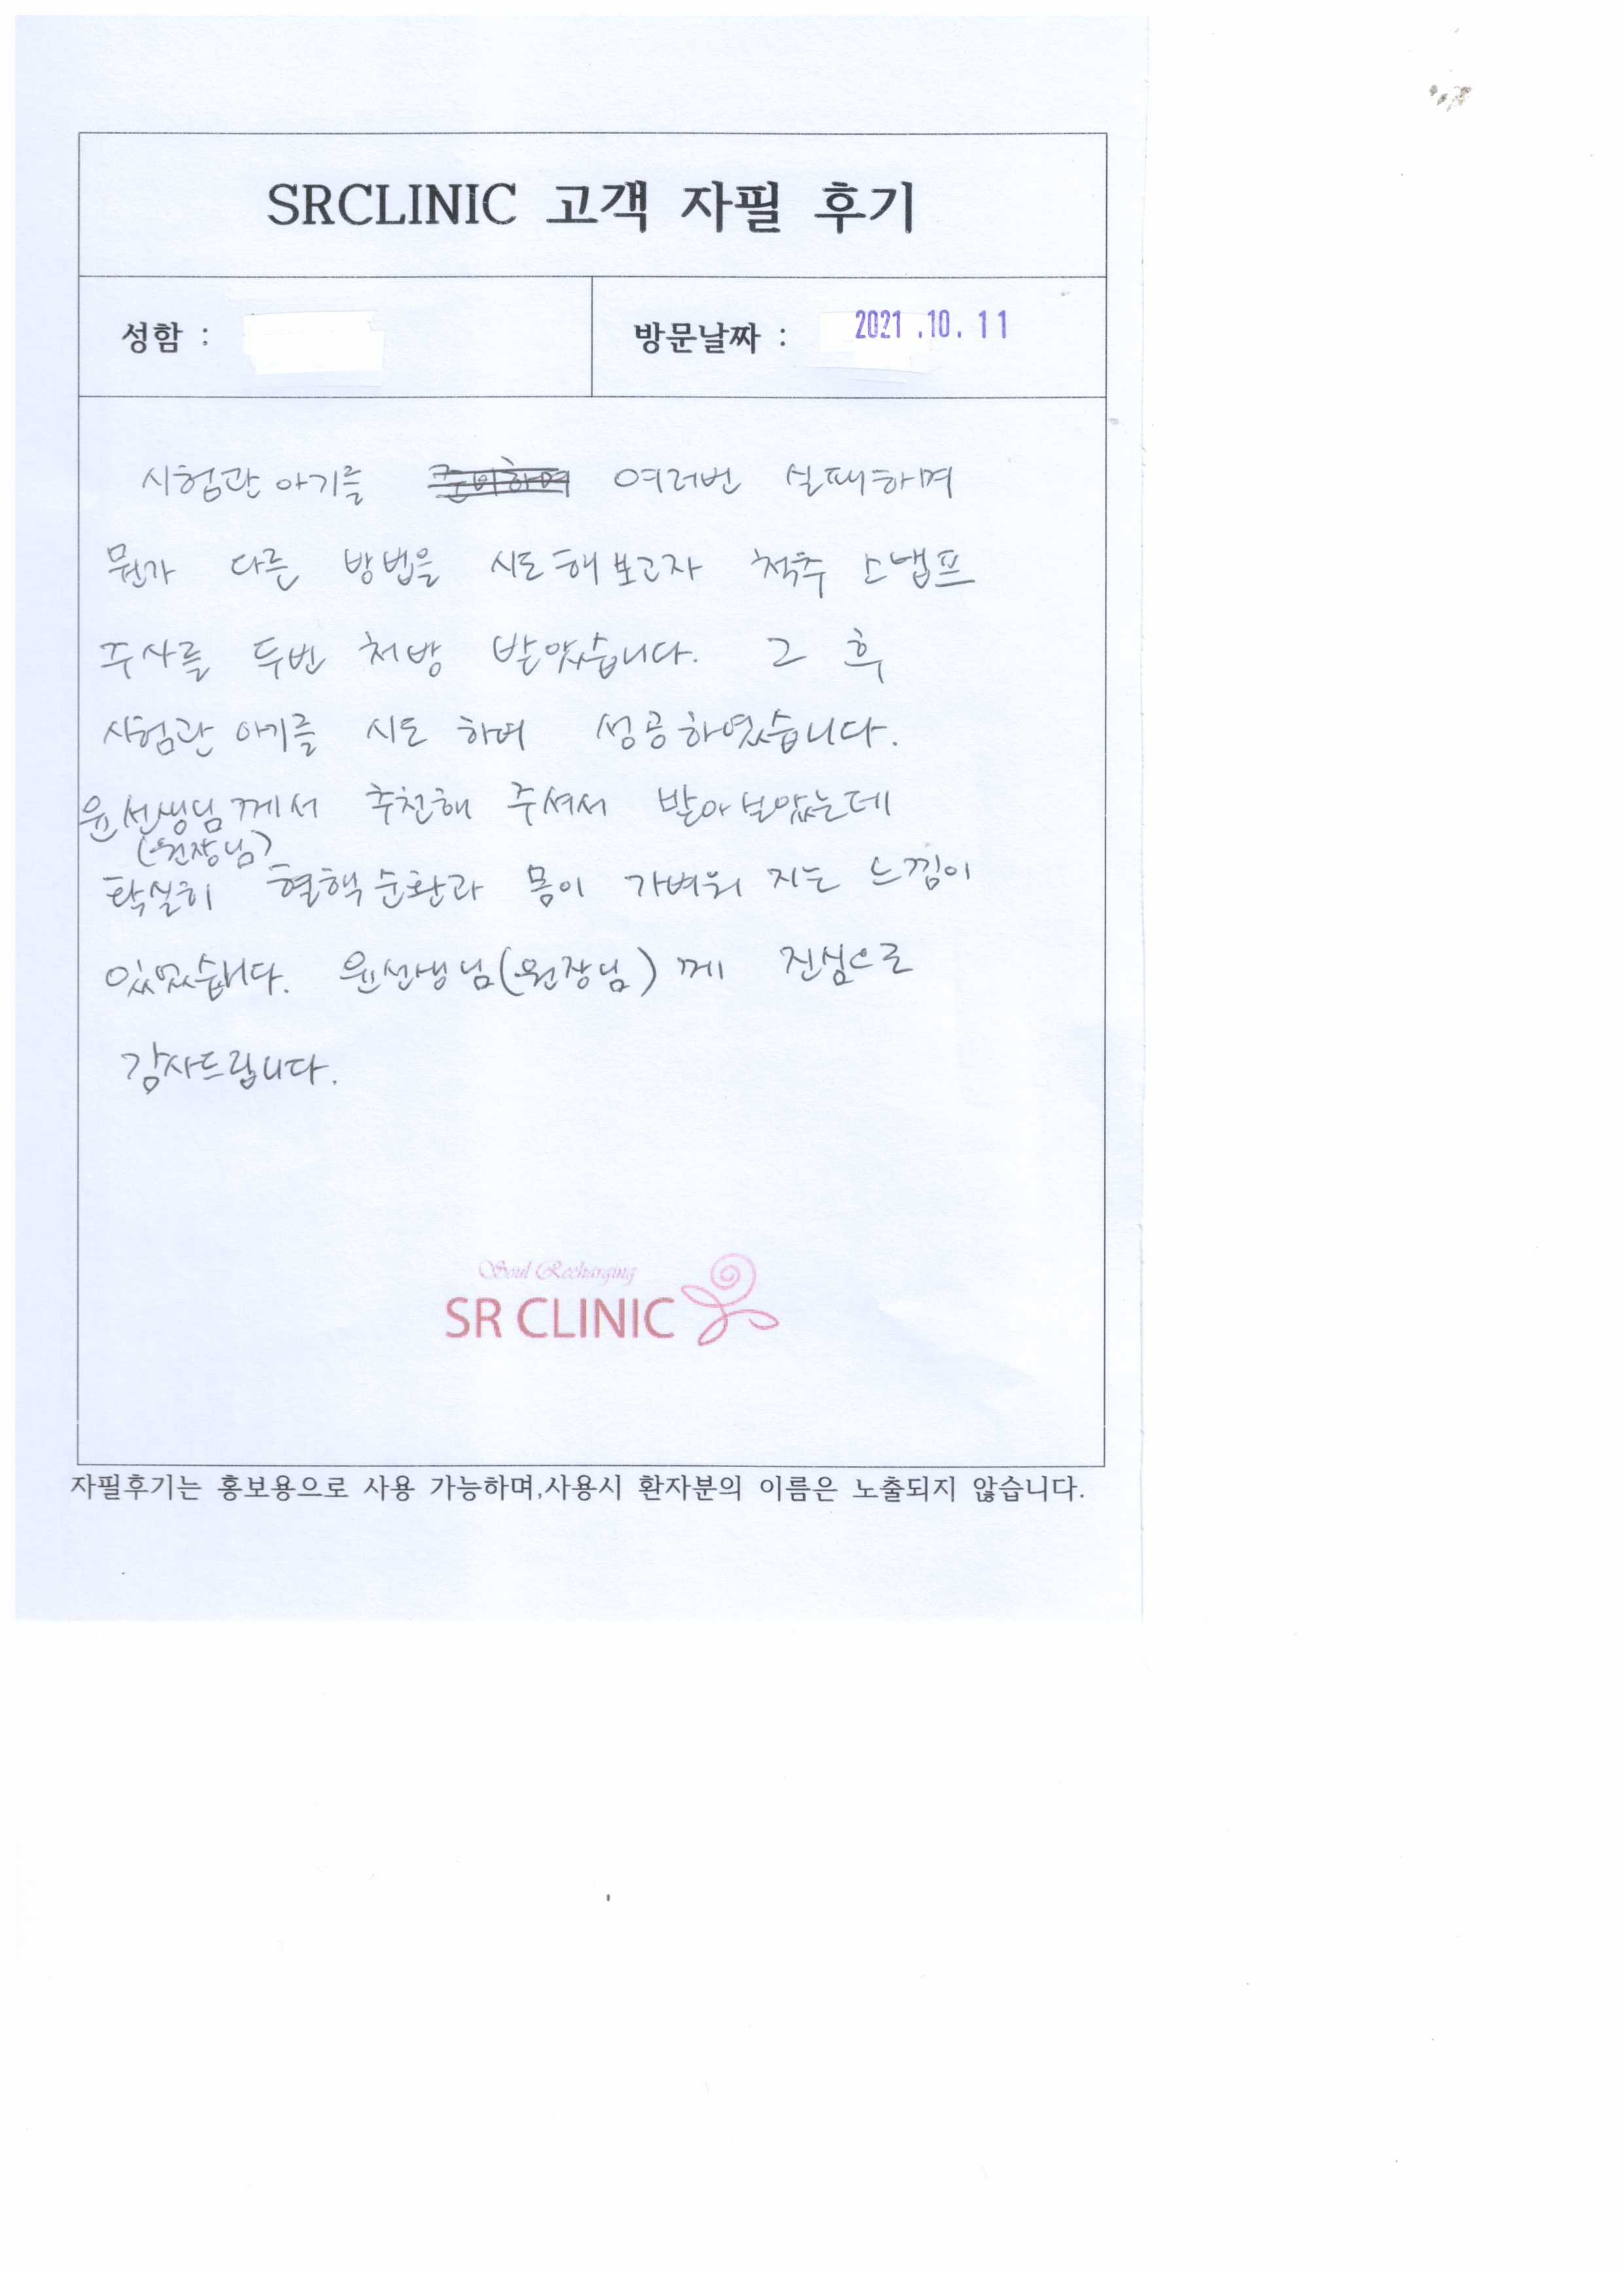 SRCLINIC 고객 자필 후기
성함 :
방문날짜 : 2021.10.11
시험관 아기를 준비하여 여러번 실패하며
뭔가 다른 방법을 시도해보고자 척추 스냅프
주사를 두번 처방 받았습니다. 그 후
시험관 아기를 시도 하여 성공하였습니다.
윤선생님께서 추천해 주셔서 받아보았는데
(원장님)
확실히 혈핵순환과 몸이 가벼워 지는 느낌이
있었습니다. 윤선생님(원장님)께 진심으로
감사드립니다.
Soul Recharging
SR CLINIC
자필후기는 홍보용으로 사용 가능하며,사용시 환자분의 이름은 노출되지 않습니다.